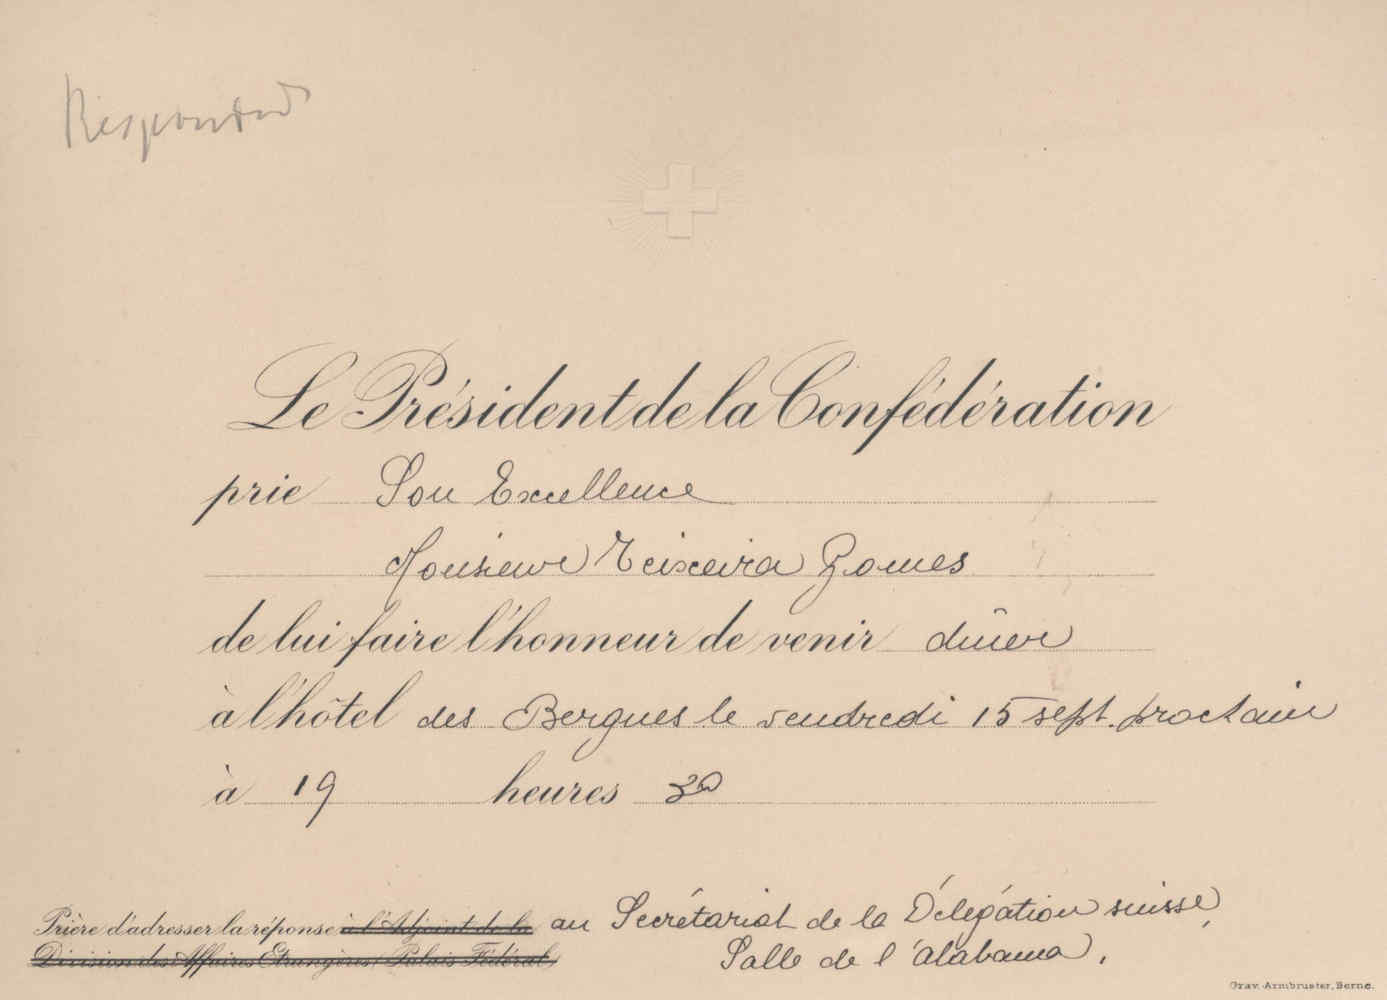 Respondido
Le Président de la Confédération
prie Son Excellence
Monsieur Teixeira Gomes
de lui faire l'honneur de venir dîner
à l'hôtel des Bergues le vendredi 15 sept. prochain
à 19 heures 30
Prière d'adresser la réponse à l'Adjoint de la au Secrétariat de la Délégation suisse,
Division des Affaires Etrangères, Palais Fédéral, Salle de l'alabama,
Grav. Armbruster, Berne.